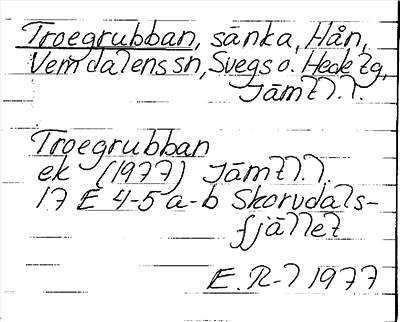 Troegrubban, sänka, Hån,
Vemdalens sn, Svegs o. Hede tg,
Jämtl.l.
Troegrubban
ek (1977) Jämtl.l.
17 E 4-5 a-b Skorvdals-
fjället
E. R-l 1977